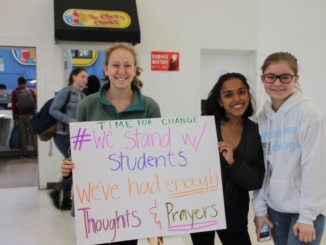 TIME FOR CHANGE
#We Stand w/
Students
We've had enough
Thoughts &
Prayers